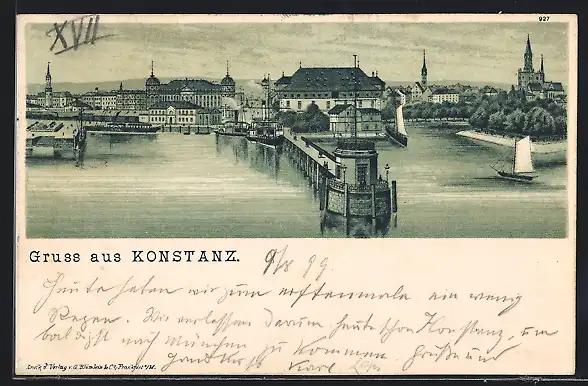 927
XVII
Gruss aus KONSTANZ.
9/8 99.
Heute haben wir zum erstenmale ein wenig
Regen. Wir verlassen darum heute schon Konstanz, um
baldigst nach München zu kommen. Grüße und
Handkuß Karl
Druck & Verlag v. G. Blümlein & Co., Frankfurt a/M.